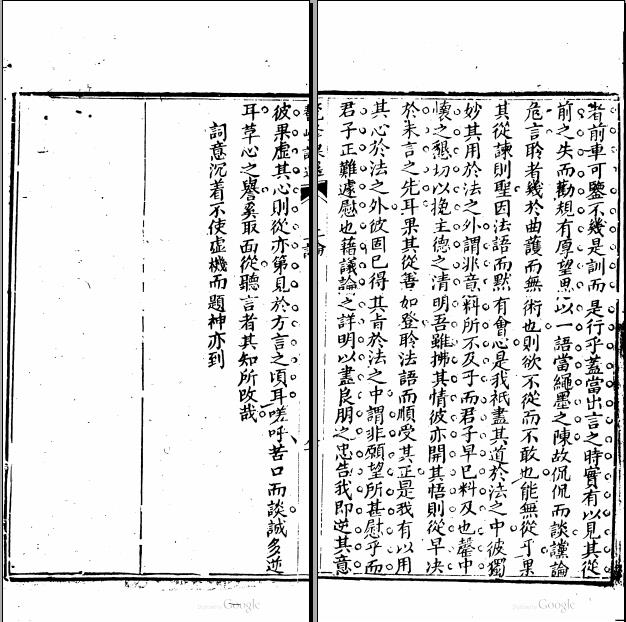 者前車可鑒不幾是訓而是行乎蓋當出言之時實有以見其從
前之失而勸規有厚望焉以一語當繩墨之陳故侃侃而談讜論
危言聆者幾於曲護而無術也則欲不從而不敢也能無從乎果
其從諫則聖因法語而黙有會心是我祇盡其道於法之中彼獨
妙其用於法之外謂非意料所不及乎而君子早已料及也罄中
懷之懇切以挽主德之清明吾雖拂其情彼亦開其悟則從早决
於未言之先耳果其從善如登聆法語而順受其正是我有以用
其心於法之外彼固已得其旨於法之中謂非願望所甚慰乎而
君子正難遽慰也藉議論之詳明以盡良朋之忠告我即逆其意
上論
彼果虛其心則從亦第見於方言之頃耳嗟呼苦口而談誠多逆
耳草心之譽奚取面從聽言者其知所改哉
詞意沉着不使虛機而題神亦到
Digitized by Google
Digitized by Google